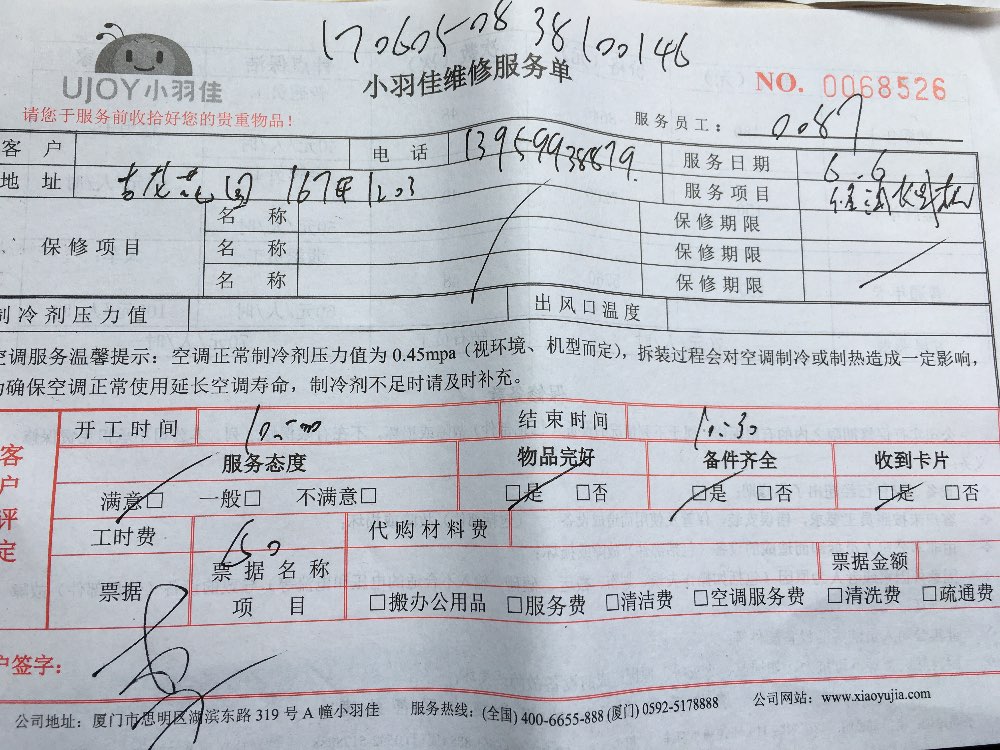 170605-0838100146
UJOY小羽佳
小羽佳维修服务单
NO. 0068526
请您于服务前收拾好您的贵重物品！
服务员工： 0087
客 户 电 话 13959938879 服务日期 6.6
地 址 167 1203 服务项目
保修项目 名 称 保修期限
名 称 保修期限
名 称 保修期限
制冷剂压力值 出风口温度
空调服务温馨提示：空调正常制冷剂压力值为 0.45mpa（视环境、机型而定），拆装过程会对空调制冷或制热造成一定影响，
为确保空调正常使用延长空调寿命，制冷剂不足时请及时补充。
客户评定
开工时间 结束时间
服务态度 物品完好 备件齐全 收到卡片
满意□ 一般□ 不满意□ □是 □否 □是 □否 □是 □否
工时费 150 代购材料费
票据 票据名称 票据金额
项 目 □搬办公用品 □服务费 □清洁费 □空调服务费 □清洗费 □疏通费
户签字：
公司地址：厦门市思明区湖滨东路 319 号 A 幢小羽佳 服务热线：(全国) 400-6655-888 (厦门) 0592-5178888 公司网站：www.xiaoyujia.com